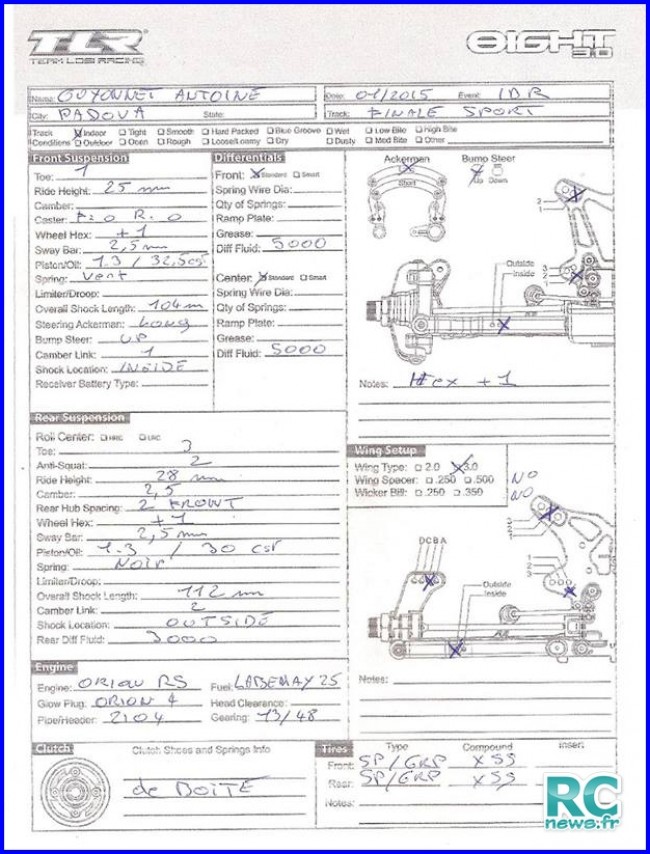 TLR
TEAM LOSI RACING
8IGHT 3.0
Name: GUYONNET ANTOINE Date: 01/2015 Event: IBR
City: PADOVA State: Track: FINALE SPORT
Track Conditions Indoor Tight Smooth Hard Packed Blue Groove Wet Low Bite High Bite
Outdoor Open Rough Loose/Loamy Dry Dusty Med Bite Other
Front Suspension
Toe: 1
Ride Height: 25 mm
Camber:
Caster: F=0 R.0
Wheel Hex: +1
Sway Bar: 2,5 mm
Piston/Oil: 1.3 / 32,5 cst
Spring: Vert
Limiter/Droop:
Overall Shock Length: 104 m
Steering Ackerman: Long
Bump Steer: UP
Camber Link: 1
Shock Location: INSIDE
Receiver Battery Type:
Differentials
Front: Standard Smart
Spring Wire Dia:
Qty of Springs:
Ramp Plate:
Grease:
Diff Fluid: 5000
Center: Standard Smart
Spring Wire Dia:
Qty of Springs:
Ramp Plate:
Grease:
Diff Fluid: 5000
Ackerman Bump Steer
Short
Up Down
2
1
3
2
1
Outside
Inside
Notes: Hex +1
Rear Suspension
Roll Center: HRC LRC
Toe: 3
Anti-Squat: 2
Ride Height: 28 mm
Camber: 2,5
Rear Hub Spacing: 2 FRONT
Wheel Hex: +1
Sway Bar: 2,5 mm
Piston/Oil: 1.3 / 30 cst
Spring: Noir
Limiter/Droop:
Overall Shock Length: 112 m
Camber Link: 2
Shock Location: OUTSIDE
Rear Diff Fluid: 3000
Wing Setup
Wing Type: 2.0 3.0
Wing Spacer: .250 .500 NO
Wicker Bill: .250 .350 NO
DCBA
1
2
3
Outside
Inside
Notes:
Engine
Engine: ORION RS Fuel: LABEMAX 25
Glow Plug: ORION 4 Head Clearance:
Pipe/Header: 2104 Gearing: 13/48
Clutch Clutch Shoes and Springs Info
de BOITE
Tires Type Compound Insert
Front: SP/GRP XSS
Rear: SP/GRP XSS
Notes:
RC
news.fr